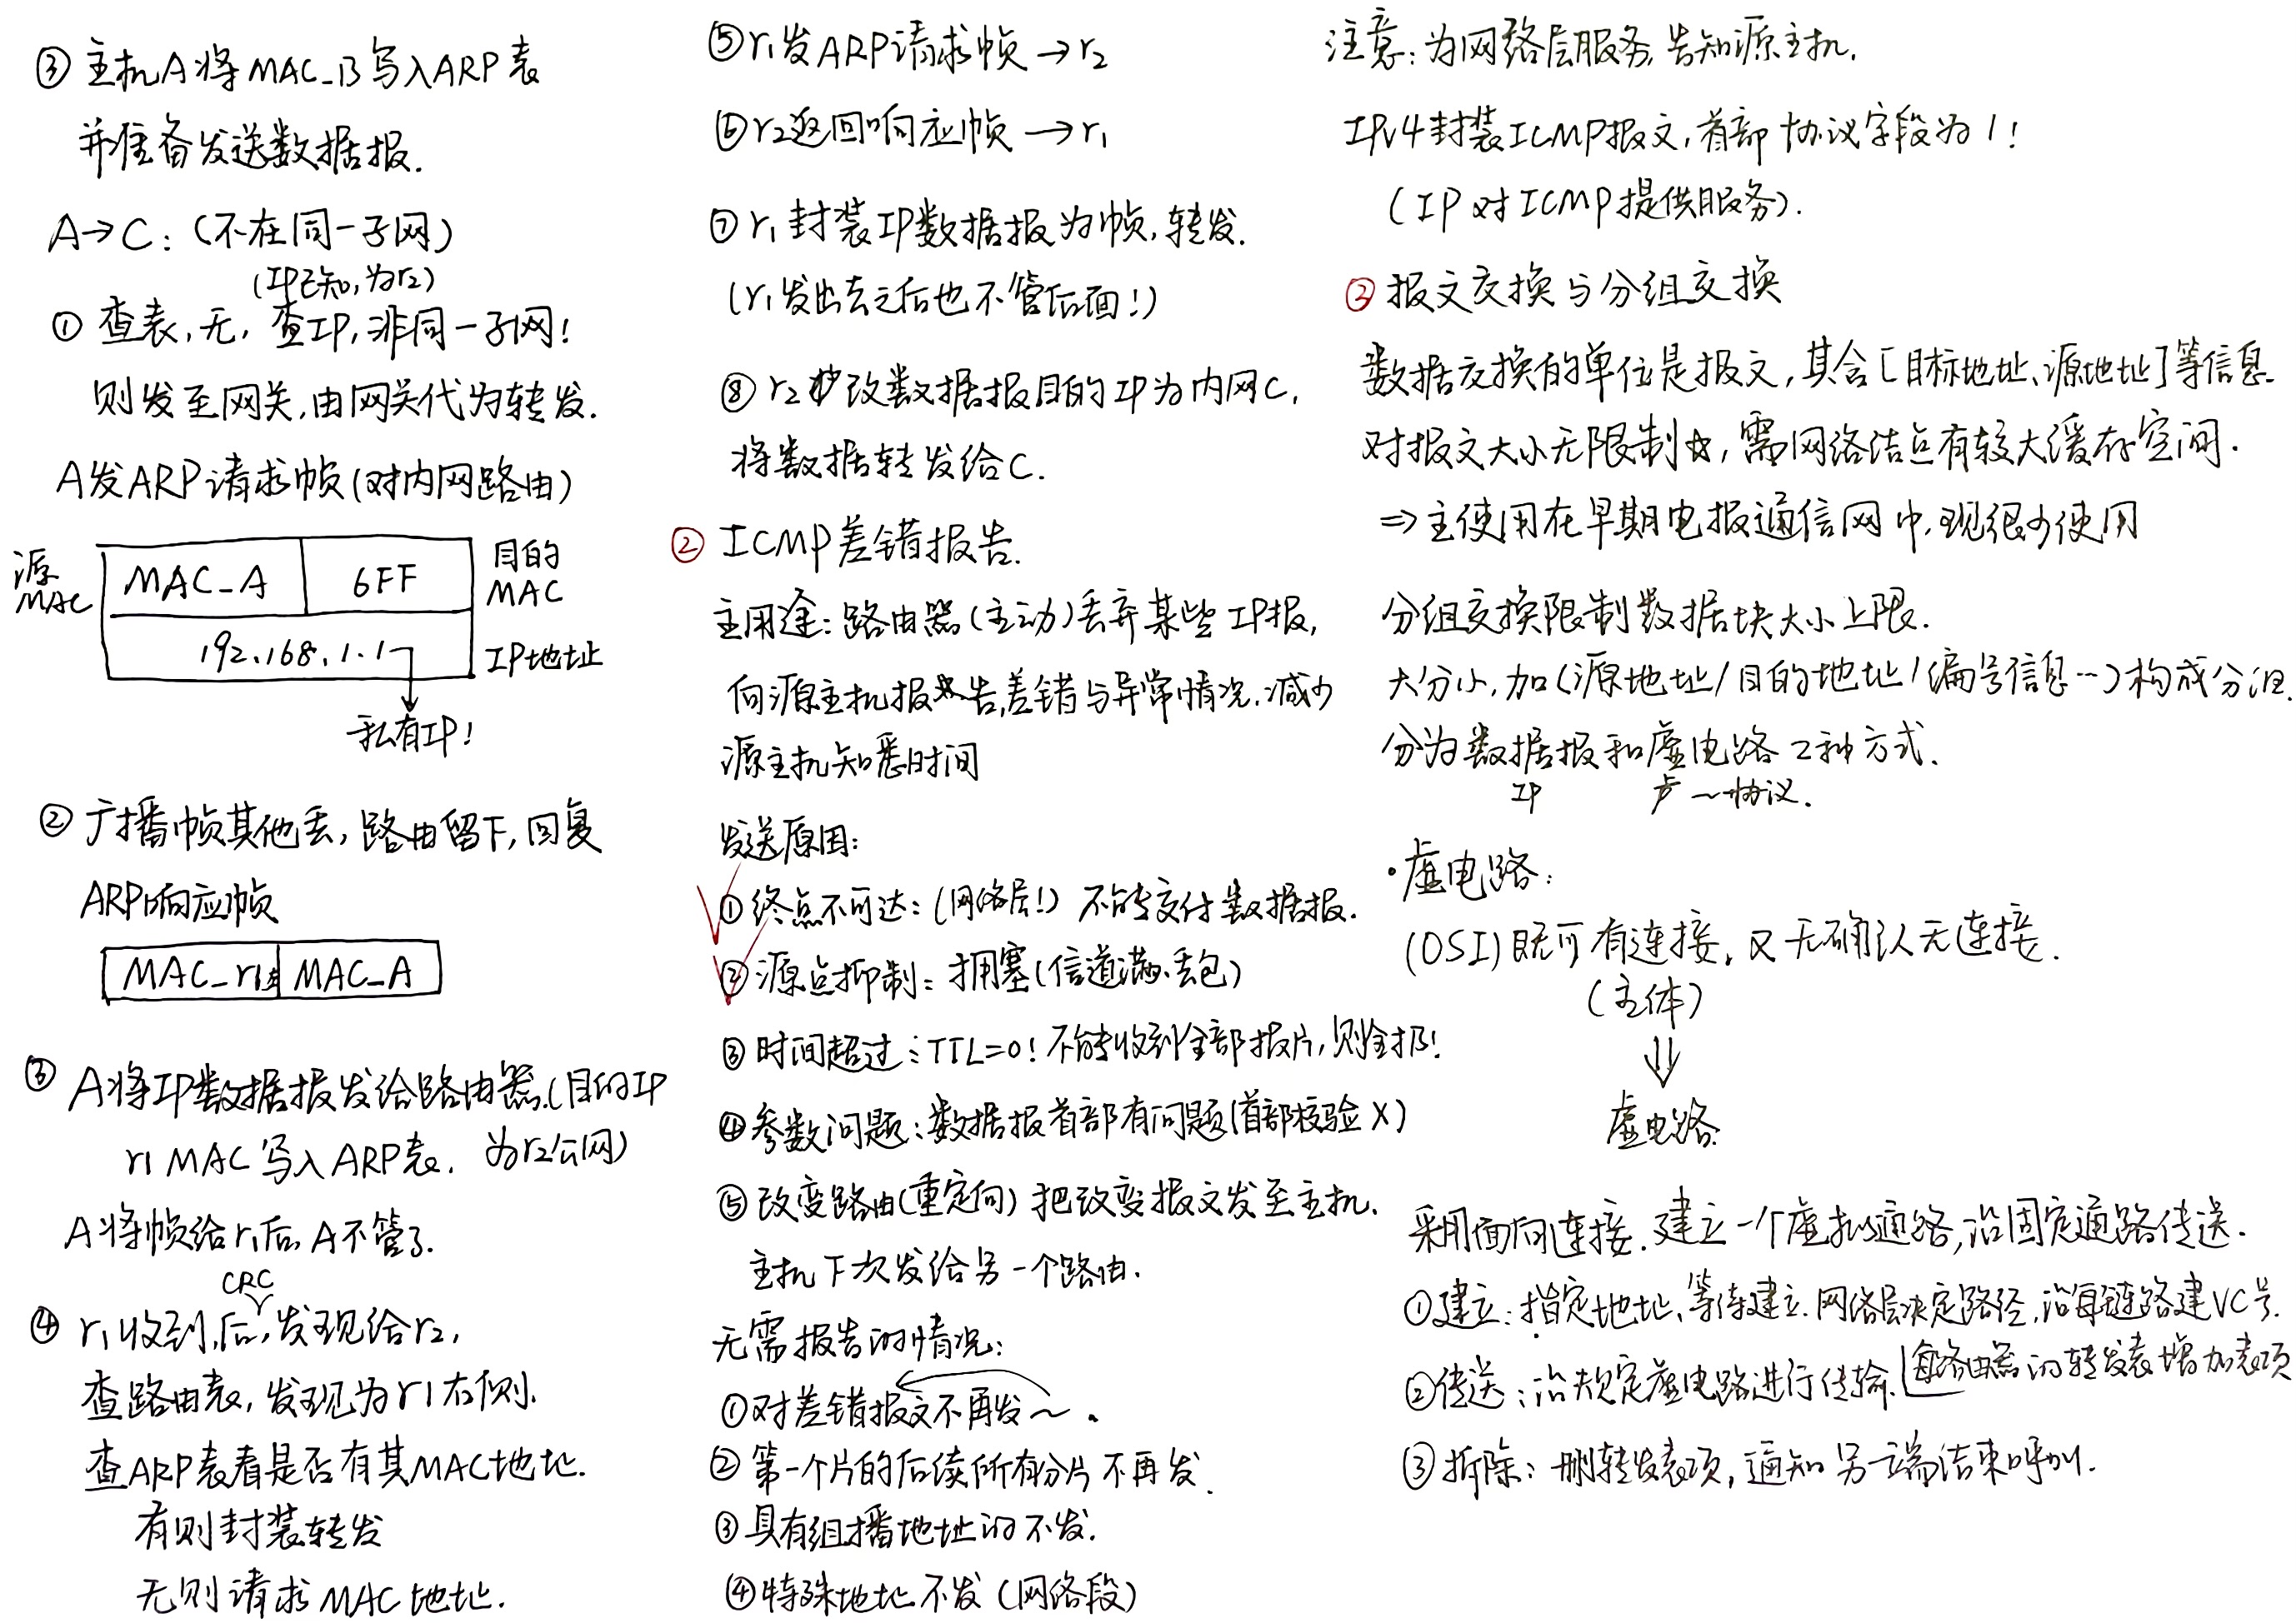 ③ 主机A将MAC_B写入ARP表
并准备发送数据报.
A→C:(不在同一子网)
(IP已知,为r2)
① 查表,无,查IP,非同一子网!
则发至网关,由网关代为转发.
A发ARP请求帧(对内网路由)
源MAC
MAC_A
6FF
目的MAC
192.168.1.1
IP地址
私有IP!
② 广播帧其他丢,路由留下,回复
ARP响应帧
MAC_r1
MAC_A
③ A将IP数据报发给路由器.(目的IP
r1 MAC写入ARP表. 为r2公网)
A将帧给r1后,A不管了.
CRC
④ r1收到后,发现给r2,
查路由表,发现为r1右侧.
查ARP表看是否有其MAC地址.
有则封装转发
无则请求MAC地址.
⑤r1发ARP请求帧→r2
⑥r2返回响应帧→r1
⑦r1封装IP数据报为帧,转发.
(r1发出去之后也不管后面!)
⑧ r2改数据报目的IP为内网C,
将数据转发给C.
② ICMP差错报告.
主用途:路由器(主动)丢弃某些IP报,
向源主机报告,差错与异常情况.减少
源主机知悉时间
发送原因:
①终点不可达:(网络层!) 不能交付数据报.
②源点抑制:拥塞(信道满、丢包)
③时间超过:TTL=0!不能收到全部报片,则全扔!
④参数问题:数据报首部有问题(首部校验X)
⑤改变路由(重定向) 把改变报文发至主机.
主机下次发给另一个路由.
无需报告的情况:
①对差错报文不再发~.
② 第一个片的后续所有分片不再发.
③具有组播地址的不发.
④特殊地址不发(网络段)
注意:为网络层服务,告知源主机.
IPv4封装ICMP报文,首部协议字段为1!
(IP对ICMP提供服务).
③ 报文交换与分组交换
数据交换的单位是报文,其含[目标地址、源地址]等信息.
对报文大小无限制,需网络结点有较大缓存空间.
⇒主使用在早期电报通信网中,现很少使用
分组交换限制数据块大小上限.
大分小,加(源地址/目的地址/编号信息…)构成分组.
分为数据报和虚电路2种方式.
IP ~协议.
·虚电路:
(OSI)既可有连接,又无确认无连接.
(主体)
⇓
虚电路
采用面向连接.建立一个虚拟通路,沿固定通路传送.
①建立:指定地址、等待建立.网络层决定路径,沿每链路建VC号.
每路由器的转发表增加表项
②传送:沿规定虚电路进行传输.
③拆除:删转发表项,通知另一端结束呼叫.